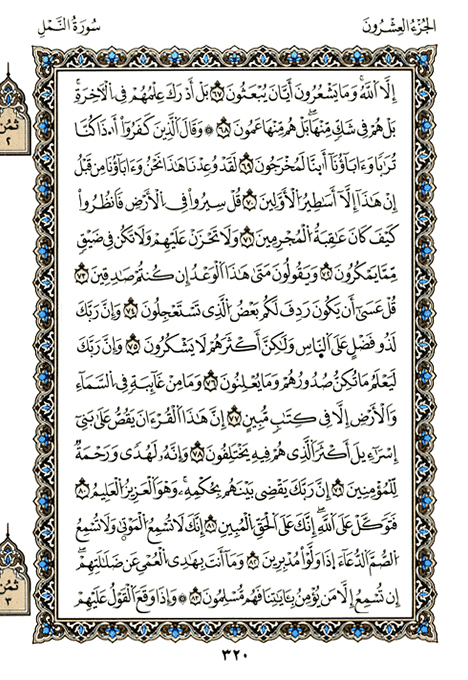 الجُزْءُ العِشْرُونَ
سُورَةُ النَّمْلِ
إِلَّا اللَّهُ وَمَا يَشْعُرُونَ أَيَّانَ يُبْعَثُونَ ٦٧ بَلْ أَدْرَكَ عِلْمُهُمْ فِي الْأَخِرَةِ
بَلْ هُمْ فِي شَكٍّ مِنْهَا بَلْ هُمْ مِنْهَا عَمُونَ ٦٨ ۞ وَقَالَ الَّذِينَ كَفَرُوا أَ۟ذَا كُنَّا
تُرَابًا وَءَابَاؤُنَا أَينَّا لَمُخْرَجُونَ ٦٩ لَقَدْ وُعِدْنَا هَٰذَا نَحْنُ وَءَابَاؤُنَا مِن قَبْلُ
إِنْ هَٰذَا إِلَّا أَسَاطِيرُ الْأَوَّلِينَ ٧٠ قُلْ سِيرُوا فِي الْأَرْضِ فَانظُرُوا
كَيْفَ كَانَ عَاقِبَةُ الْمُجْرِمِينَ ٧١ وَلَا تَحْزَنْ عَلَيْهِمْ وَلَا تَكُن فِي ضَيْقٍ
مِّمَّا يَمْكُرُونَ ٧٢ وَيَقُولُونَ مَتَىٰ هَٰذَا الْوَعْدُ إِن كُنتُمْ صَٰدِقِينَ ٧٣
قُلْ عَسَىٰ أَن يَكُونَ رَدِفَ لَكُم بَعْضُ الَّذِي تَسْتَعْجِلُونَ ٧٤ وَإِنَّ رَبَّكَ
لَذُو فَضْلٍ عَلَى النَّاسِ وَلَٰكِنَّ أَكْثَرَهُمْ لَا يَشْكُرُونَ ٧٥ وَإِنَّ رَبَّكَ
لَيَعْلَمُ مَا تُكِنُّ صُدُورُهُمْ وَمَا يُعْلِنُونَ ٧٦ وَمَا مِنْ غَائِبَةٍ فِي السَّمَاءِ
وَالْأَرْضِ إِلَّا فِي كِتَٰبٍ مُّبِينٍ ٧٧ إِنَّ هَٰذَا الْقُرْءَانَ يَقُصُّ عَلَىٰ بَنِي
إِسْرَٰءِيلَ أَكْثَرَ الَّذِي هُمْ فِيهِ يَخْتَلِفُونَ ٧٨ وَإِنَّهُ لَهُدًى وَرَحْمَةٌ
لِّلْمُؤْمِنِينَ ٧٩ إِنَّ رَبَّكَ يَقْضِي بَيْنَهُم بِحُكْمِهِ وَهْوَ الْعَزِيزُ الْعَلِيمُ ٨٠
فَتَوَكَّلْ عَلَى اللَّهِ إِنَّكَ عَلَى الْحَقِّ الْمُبِينِ ٨١ إِنَّكَ لَا تُسْمِعُ الْمَوْتَىٰ وَلَا تُسْمِعُ
الصُّمَّ الدُّعَاءَ اذَا وَلَّوْا مُدْبِرِينَ ٨٢ وَمَا أَنتَ بِهَٰدِي الْعُمْيِ عَن ضَلَٰلَتِهِمْ
إِن تُسْمِعُ إِلَّا مَن يُؤْمِنُ بِـَٔايَٰتِنَا فَهُم مُّسْلِمُونَ ٨٣ ۞ وَإِذَا وَقَعَ الْقَوْلُ عَلَيْهِمْ
ثُمُن
٢
ثُمُن
٣
٣٢٠